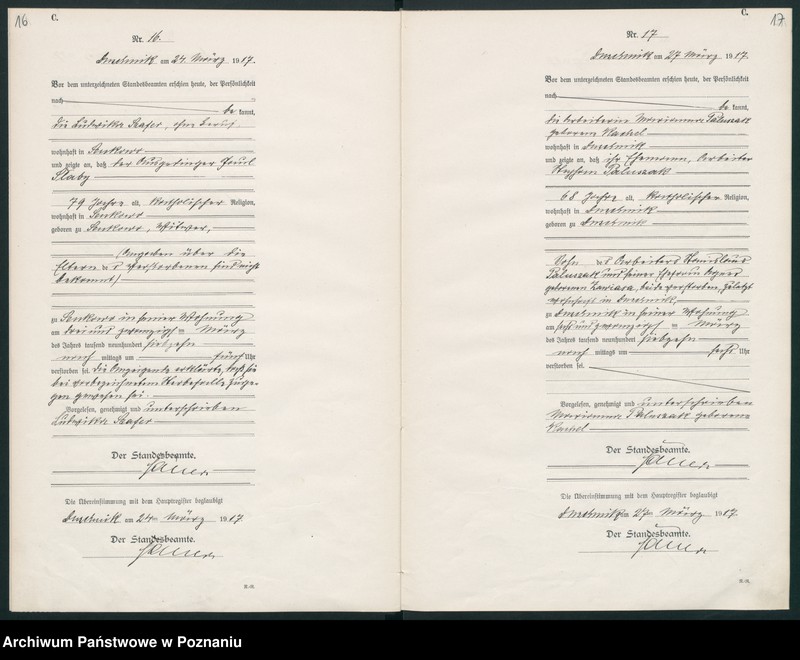 16
C.
Nr. 16.
am 24. März 1917.
Vor dem unterzeichneten Standesbeamten erschien heute, der Persönlichkeit
nach
be kannt,
die Ludwika ohne Beruf,
wohnhaft in
und zeigte an, daß der Ausgedinger
Slaby
79 Jahre alt, katholischer Religion,
wohnhaft in
geboren zu Witwer,
(Angaben über die
Eltern des Verstorbenen sind nicht
bekannt)
zu in seiner Wohnung
am drei und zwanzigsten März
des Jahres tausend neunhundert siebzehn
nach mittags um fünf Uhr
verstorben sei. Die Anzeigende erklärte, daß sie
bei vorbezeichnetem Sterbefalle zuge-
gen gewesen sei.
Vorgelesen, genehmigt und unterschrieben
Ludwika
Der Standesbeamte.
Die Übereinstimmung mit dem Hauptregister beglaubigt
am 24. März 1917.
Der Standesbeamte.
17
C.
Nr. 17
am 27 März 1917.
Vor dem unterzeichneten Standesbeamten erschien heute, der Persönlichkeit
nach
be kannt,
die Arbeiterin Marianna Paluszak
geborene
wohnhaft in
und zeigte an, daß ihr Ehemann, Arbeiter
Paluszak
68 Jahre alt, katholischer Religion,
wohnhaft in
geboren zu
Sohn des Arbeiters
Paluszak und seiner Ehefrau Agnes
geborenen beide verstorben, zuletzt
wohnhaft in
zu in seiner Wohnung
am sechs und zwanzigsten März
des Jahres tausend neunhundert siebzehn
nach mittags um sechs Uhr
verstorben sei.
Vorgelesen, genehmigt und unterschrieben
Marianna Paluszak geborene
Der Standesbeamte.
Die Übereinstimmung mit dem Hauptregister beglaubigt
am 27. März 1917.
Der Standesbeamte.
Archiwum Państwowe w Poznaniu